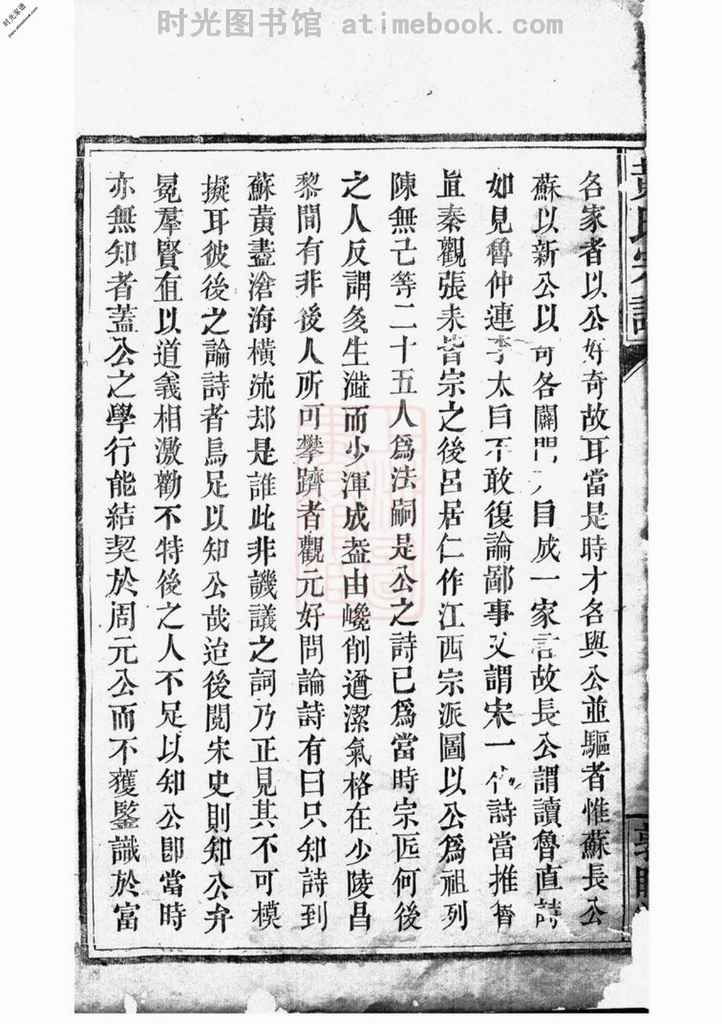 时光图书馆 atimebook.com
时光家谱
www.atimebook.com
黃氏宗譜
各家者以公好奇故耳當是時才名與公並驅者惟蘇長公
蘇以新公以奇各闢門自成一家言故長公謂讀魯直詩
如見魯仲連李太白不敢復論鄙事又謂宋一代詩當推魯
直秦觀張耒皆宗之後呂居仁作江西宗派圖以公爲祖列
陳無己等二十五人爲法嗣是公之詩已爲當時宗匠何後
之人反謂灸生澁而少渾成葢由巉削遒潔氣格在少陵昌
黎間有非後人所可攀躋者觀元好問論詩有曰只知詩到
蘇黃盡滄海橫流却是誰此非譏議之詞乃正見其不可模
擬耳彼後之論詩者烏足以知公哉迨後閱宋史則知公弁
冕羣賢在以道義相激勸不特後之人不足以知公即當時
亦無知者葢公之學行能結契於周元公而不獲鑒識於富